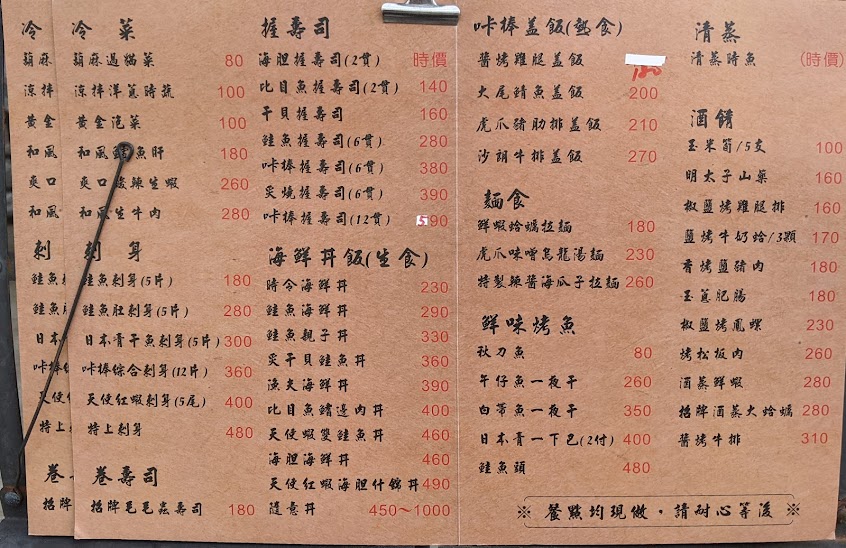 冷
葫麻
涼拌
黃金
和風
爽口
和風
刺
鮭魚
鮭魚
日本
咔棒
天使
特上
卷
招牌
冷菜
葫麻過貓菜 80
涼拌洋蔥時蔬 100
黃金泡菜 100
和風 魚肝 180
爽口酸辣生蝦 260
和風生牛肉 280
刺身
鮭魚刺身(5片) 180
鮭魚肚刺身(5片) 280
日本青干魚刺身(5片) 300
咔棒綜合刺身(12片) 360
天使紅蝦刺身(5尾) 400
特上刺身 480
卷壽司
招牌毛毛蟲壽司 180
握壽司
海胆握壽司(2貫) 時價
比目魚握壽司(2貫) 140
干貝握壽司 160
鮭魚握壽司(6貫) 280
咔棒握壽司(6貫) 380
炙燒握壽司(6貫) 390
咔棒握壽司(12貫) 590
海鮮丼飯(生食)
時令海鮮丼 230
鮭魚海鮮丼 290
鮭魚親子丼 330
炙干貝鮭魚丼 360
漁夫海鮮丼 390
比目魚鰭邊肉丼 400
天使蝦雙鮭魚丼 460
海胆海鮮丼 460
天使紅蝦海胆什錦丼 490
隨意丼 450~1000
咔棒蓋飯(熟食)
醬烤雞腿蓋飯 180
大尾鯖魚蓋飯 200
虎爪豬肋排蓋飯 210
沙朗牛排蓋飯 270
麵食
鮮蝦蛤蠣拉麵 180
虎爪味噌烏龍湯麵 230
特製辣醬海瓜子拉麵 260
鮮味烤魚
秋刀魚 80
午仔魚一夜干 260
白帶魚一夜干 350
日本青一下巴(2付) 400
鮭魚頭 480
清蒸
清蒸時魚 (時價)
酒餚
玉米筍/5支 100
明太子山藥 160
椒鹽烤雞腿排 160
鹽烤牛奶蛤/3顆 170
香烤鹽豬肉 180
玉蔥肥腸 180
椒鹽烤鳳螺 230
烤松板肉 260
酒蒸鮮蝦 280
招牌酒蒸大蛤蠣 280
醬烤牛排 310
※ 餐點均現做·請耐心等後 ※